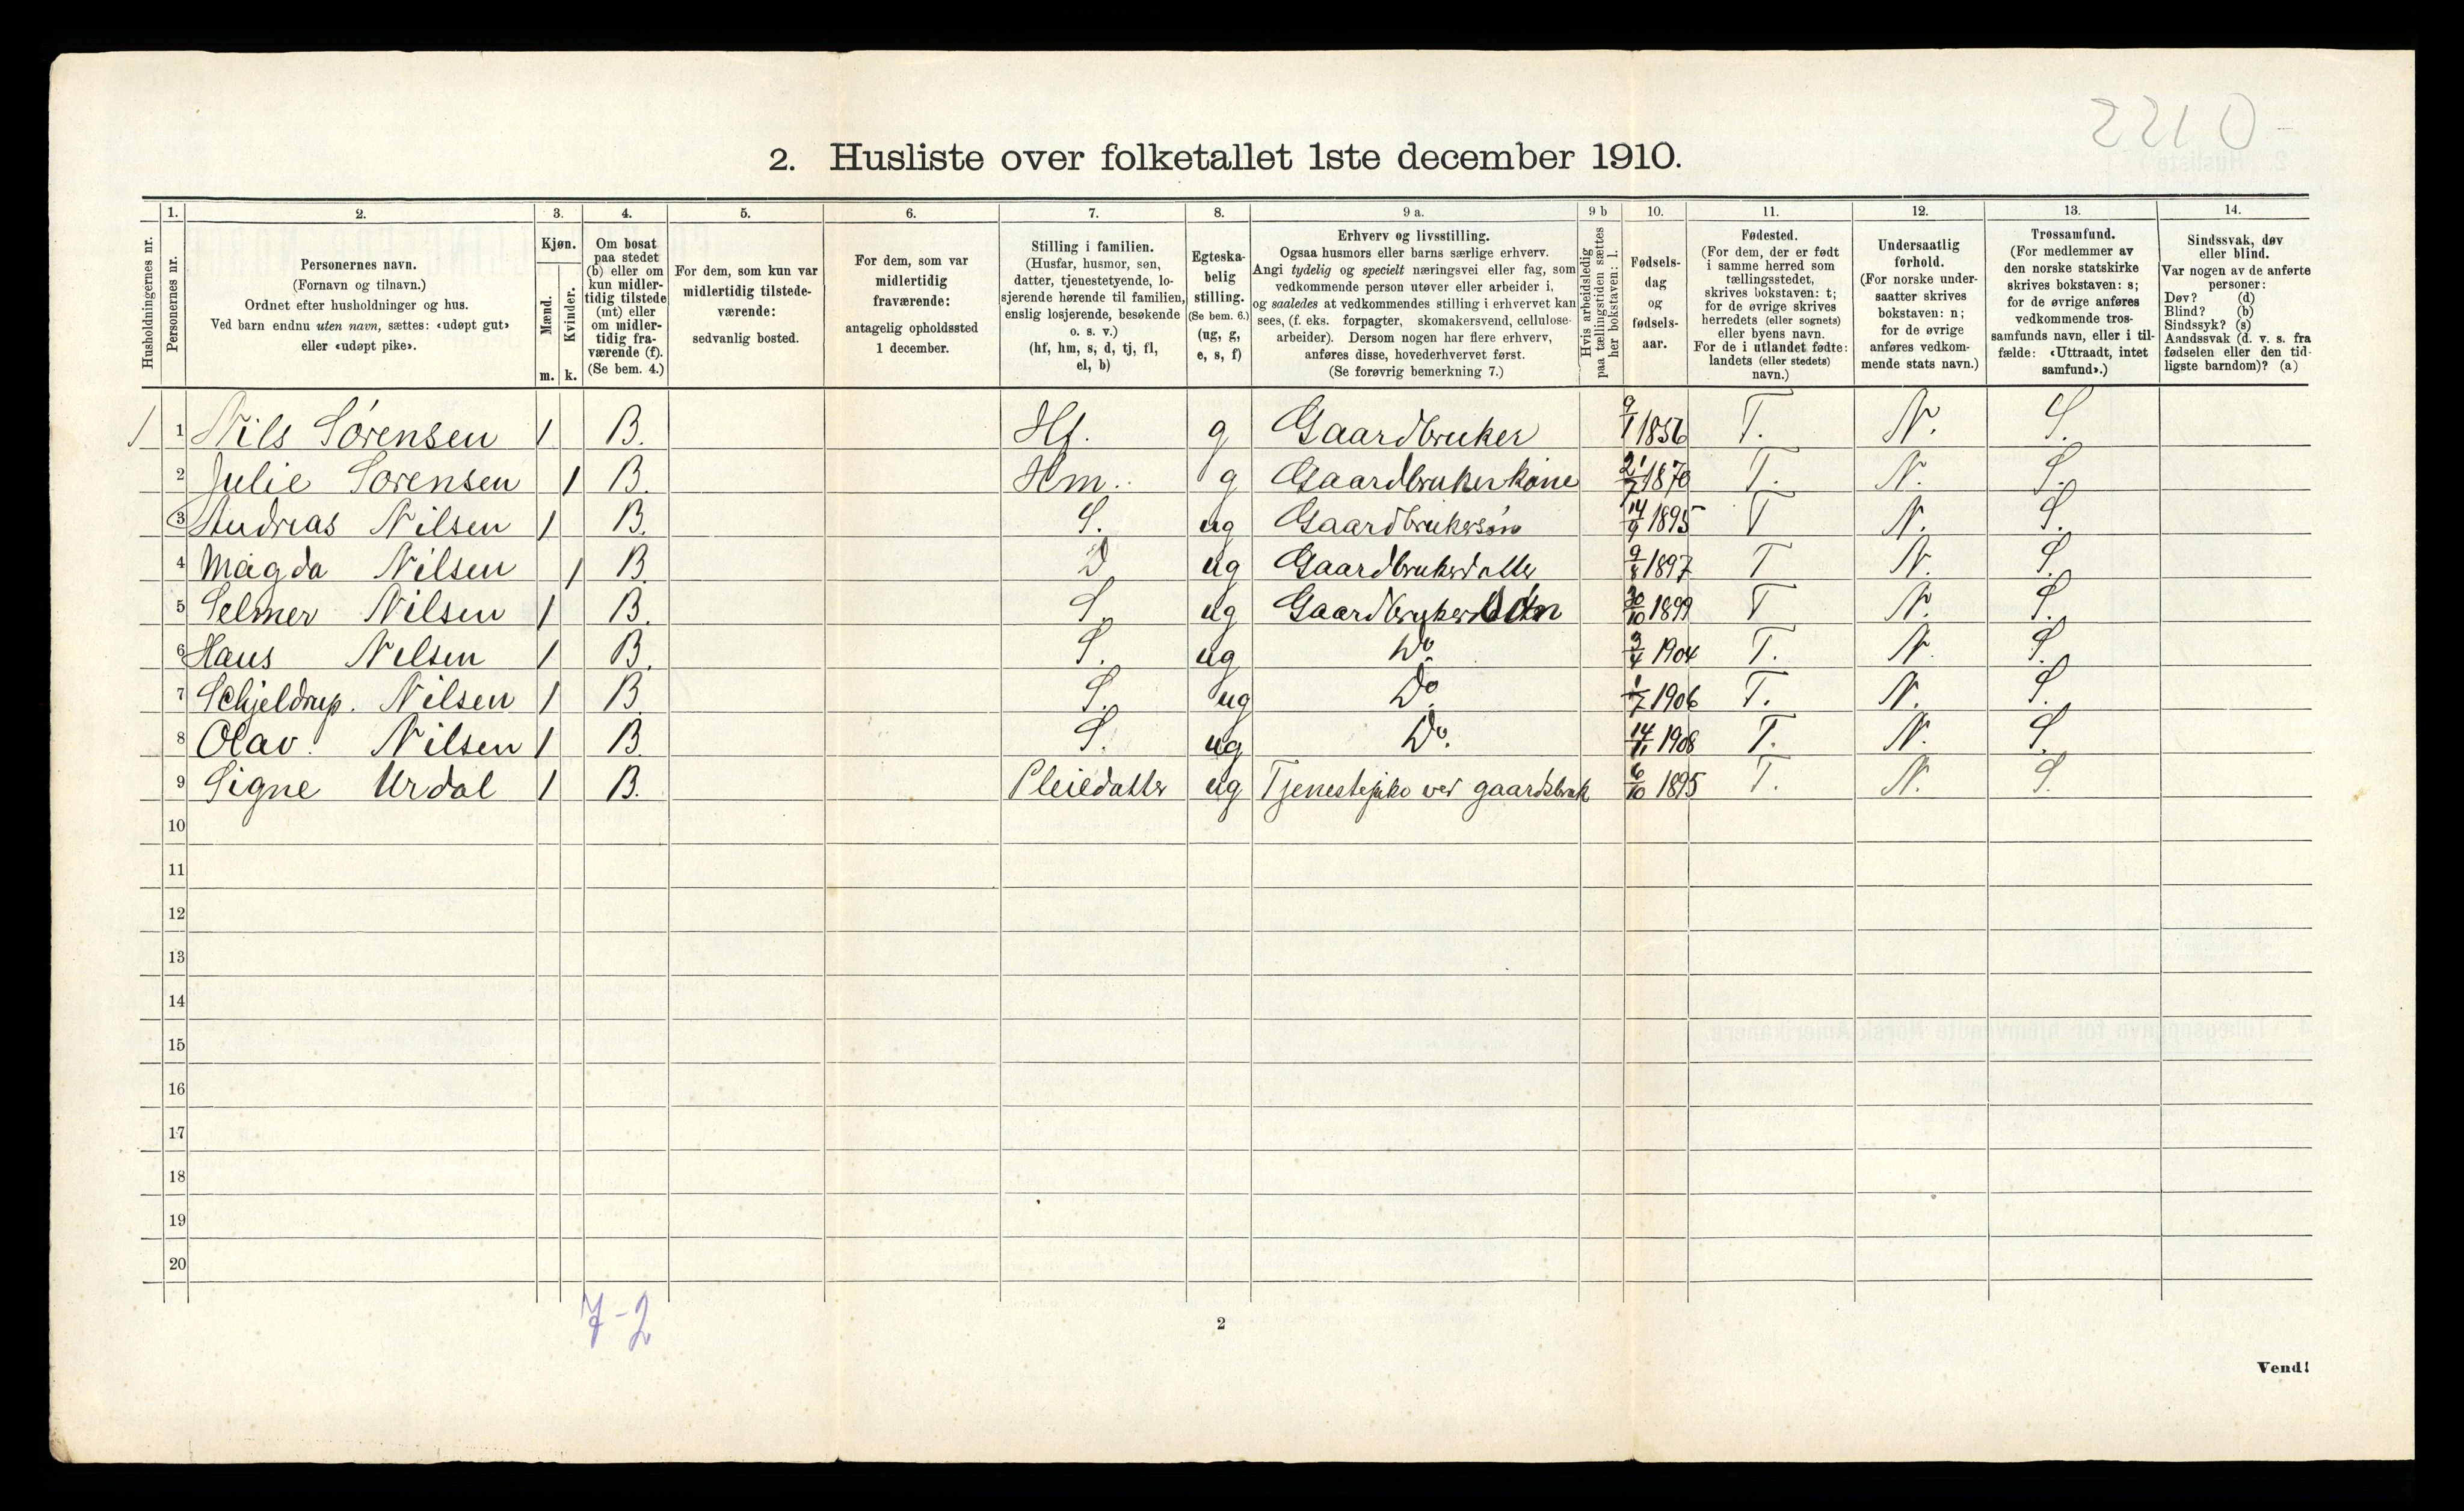 2210
2. Husliste over folketallet 1ste december 1910.
Husholdningernes nr.
1. Personernes nr.
2. Personernes navn. (Fornavn og tilnavn.) Ordnet efter husholdninger og hus. Ved barn endnu uten navn, sættes: «udøpt gut» eller «udøpt pike».
3. Kjøn. Mænd. m. Kvinder. k.
4. Om bosat paa stedet (b) eller om kun midlertidig tilstede (mt) eller om midlertidig fraværende (f). (Se bem. 4.)
5. For dem, som kun var midlertidig tilstedeværende: sedvanlig bosted.
6. For dem, som var midlertidig fraværende: antagelig opholdssted 1 december.
7. Stilling i familien. (Husfar, husmor, søn, datter, tjenestetyende, losjerende hørende til familien, enslig losjerende, besøkende o. s. v.) (hf, hm, s, d, tj, fl, el, b)
8. Egteskabelig stilling. (Se bem. 6.) (ug, g, e, s, f)
9 a. Erhverv og livsstilling. Ogsaa husmors eller barns særlige erhverv. Angi tydelig og specielt næringsvei eller fag, som vedkommende person utøver eller arbeider i, og saaledes at vedkommendes stilling i erhvervet kan sees, (f. eks. forpagter, skomakersvend, cellulosearbeider). Dersom nogen har flere erhverv, anføres disse, hovederhvervet først. (Se forøvrig bemerkning 7.)
9 b Hvis arbeidsledig paa tællingstiden sættes her bokstaven: l.
10. Fødselsdag og fødselsaar.
11. Fødested. (For dem, der er født i samme herred som tællingsstedet, skrives bokstaven: t; for de øvrige skrives herredets (eller sognets) eller byens navn. For de i utlandet fødte: landets (eller stedets) navn.)
12. Undersaatlig forhold. (For norske undersaatter skrives bokstaven: n; for de øvrige anføres vedkommende stats navn.)
13. Trossamfund. (For medlemmer av den norske statskirke skrives bokstaven: s; for de øvrige anføres vedkommende trossamfunds navn, eller i tilfælde: «Uttraadt, intet samfund».)
14. Sindssvak, døv eller blind. Var nogen av de anførte personer: Døv? (d) Blind? (b) Sindssyk? (s) Aandssvak (d. v. s. fra fødselen eller den tidligste barndom)? (a)
1 1 Nils Sørensen 1 B. Hf. g Gaardbruker 9/1 1856 T. N. S.
2 Julie Sørensen 1 B. Hm. g Gaardbrukerkone 21/7 1870 T. N. S.
3 Andreas Nilsen 1 B. S. ug Gaardbrukersøn 14/9 1895 T N. S.
4 Magda Nilsen 1 B. D ug Gaardbrukerdatter 9/8 1897 T N. S.
5 Selmer Nilsen 1 B. S. ug Gaardbrukersøn 30/10 1899 T N. S.
6 Hans Nilsen 1 B. S. ug Do. 3/4 1904 T. N. S.
7 Schjeldrup. Nilsen 1 B. S. ug Do. 1/7 1906 T. N. S.
8 Olav. Nilsen 1 B. S. ug Do. 14/11 1908 T. N. S.
9 Signe Urdal 1 B. Pleiedatter ug Tjenestepike ved gaardsbruk 6/10 1895 T. N. S.
10
11
12
13
14
15
16
17
18
19
20
7-2
2
Vend!